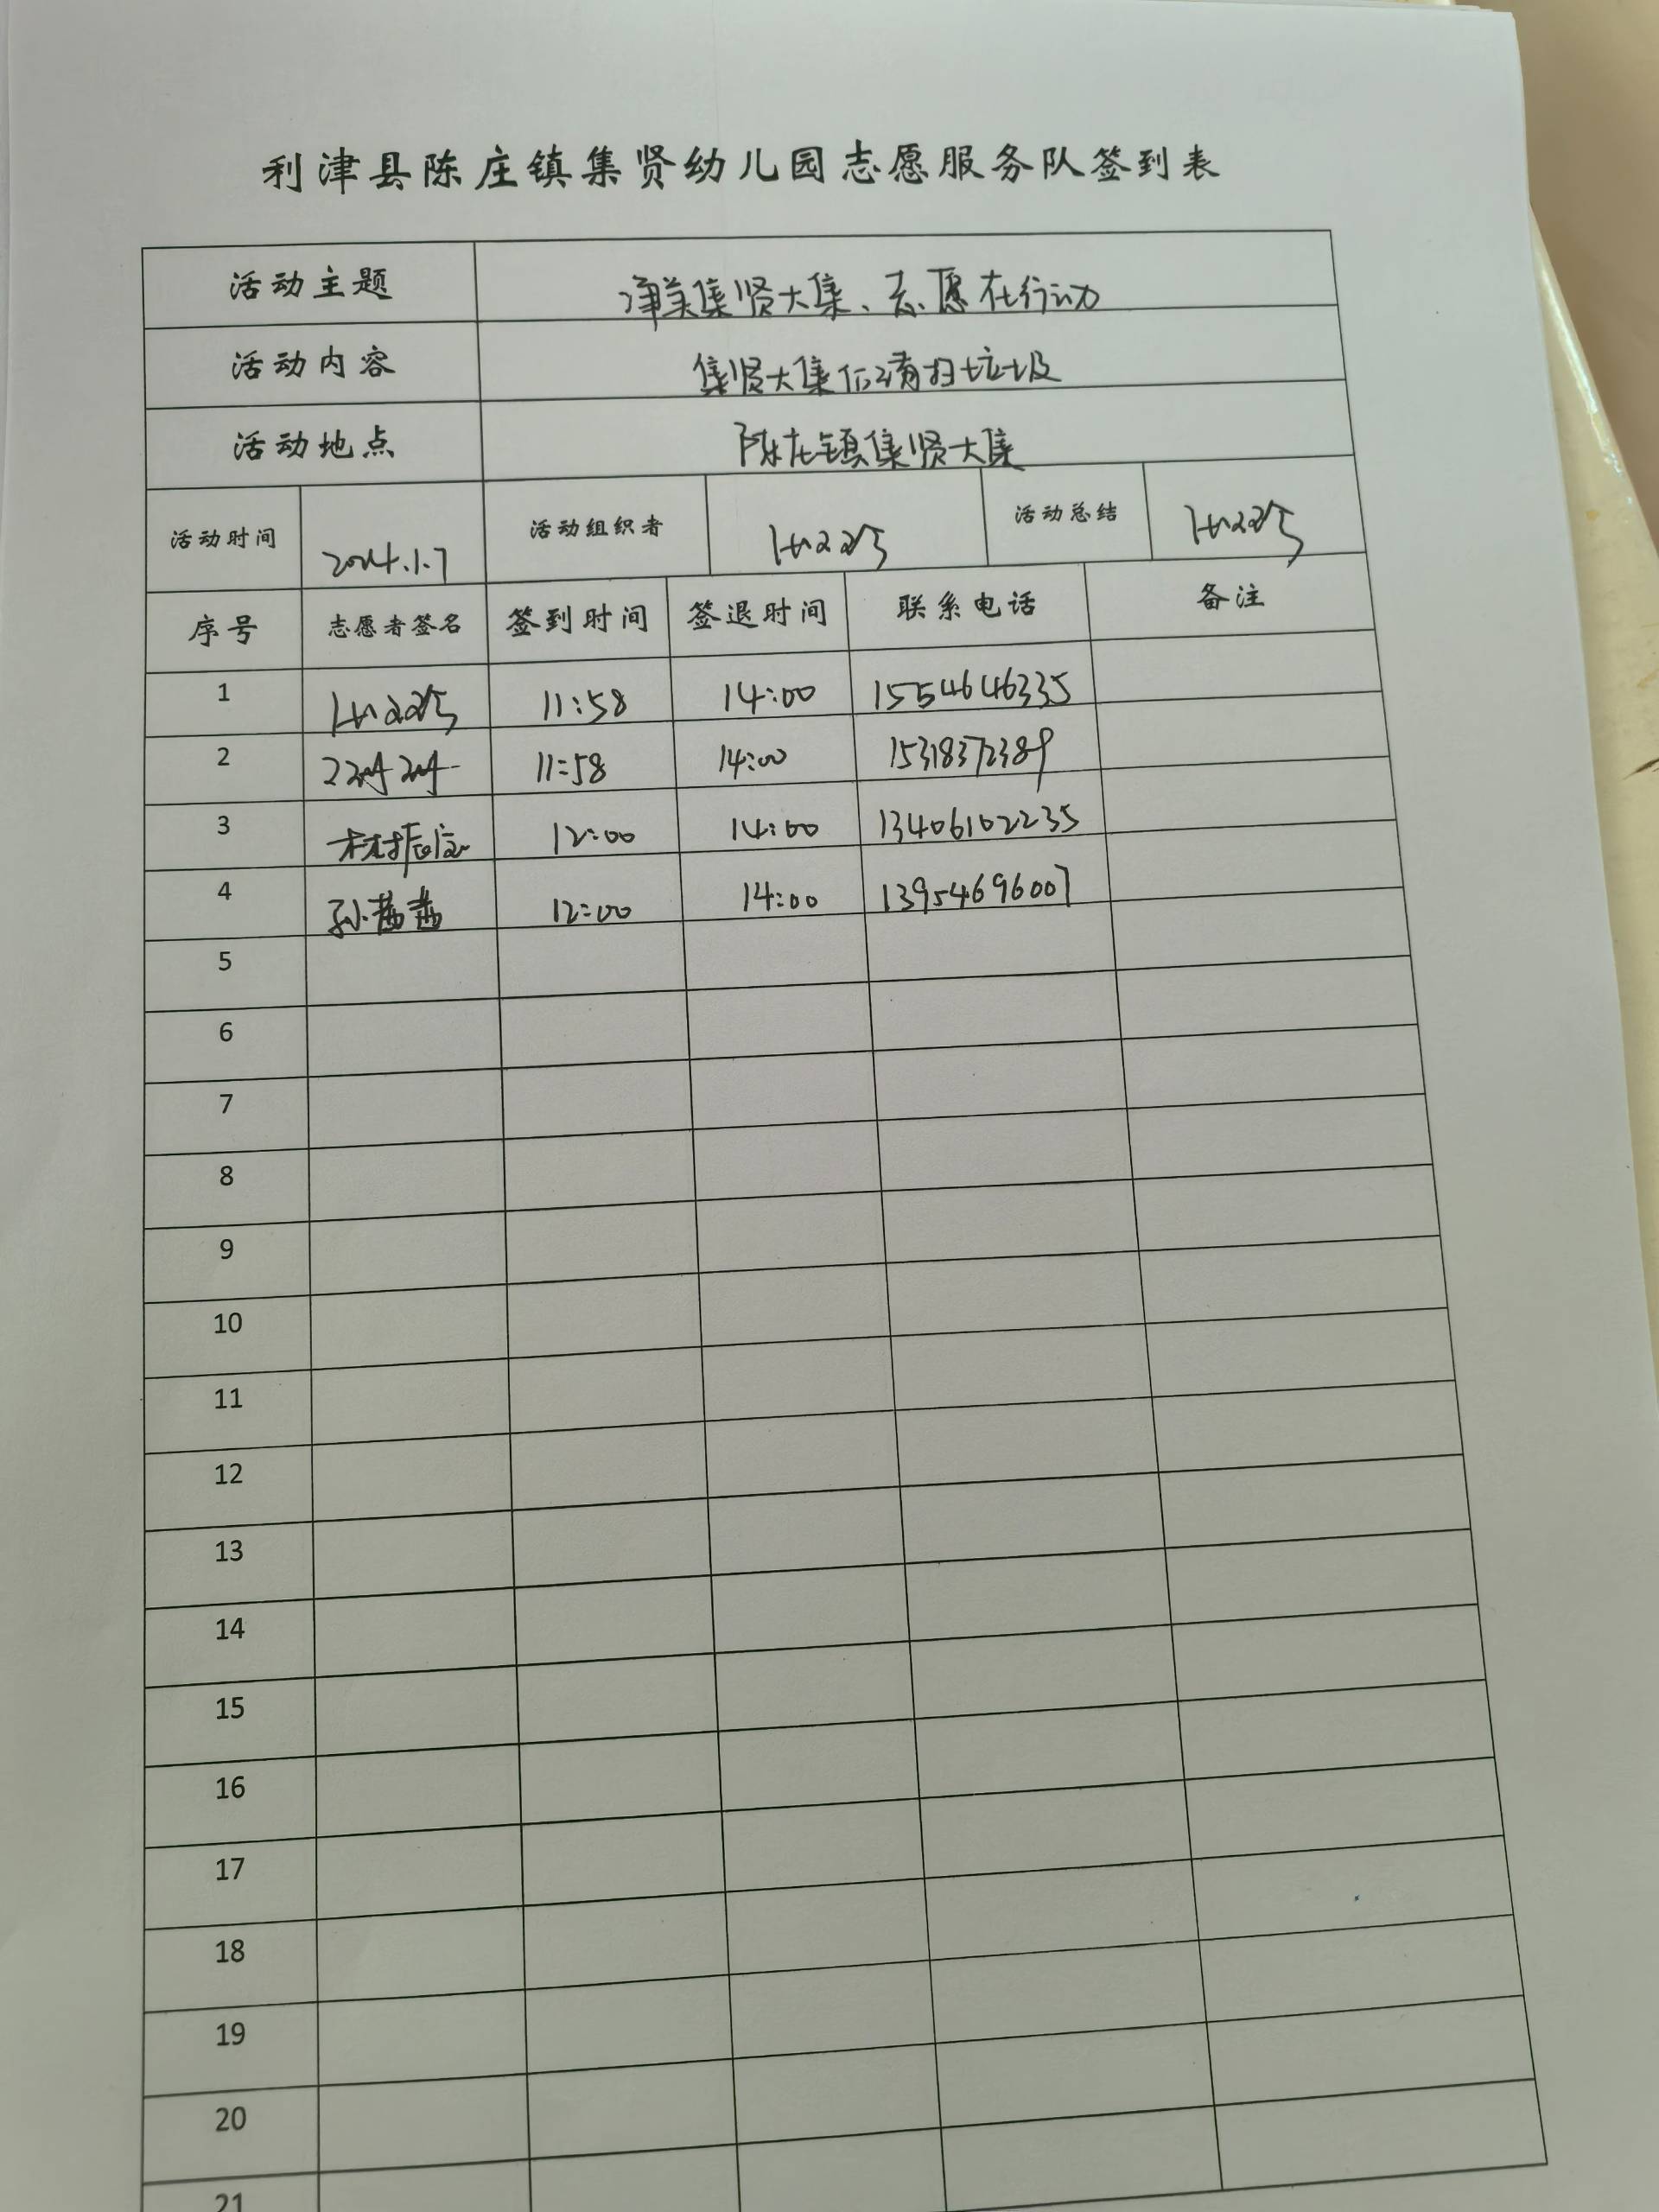 利津县陈庄镇集贤幼儿园志愿服务队签到表
活动主题 净美集贤大集、志愿在行动
活动内容 集贤大集 清扫垃圾
活动地点 陈庄镇集贤大集
活动时间 2024.1.7 活动组织者 活动总结
序号 志愿者签名 签到时间 签退时间 联系电话 备注
1 11:58 14:00 1554646335
2 11:58 14:00 15318372389
3 12:00 14:00 13406102235
4 孙茜茜 12:00 14:00 13954696007
5
6
7
8
9
10
11
12
13
14
15
16
17
18
19
20
21